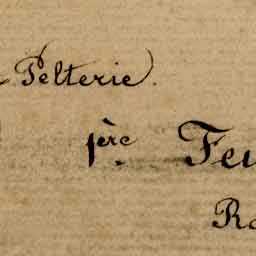 Pelterie.
p^ère Feu
Ro